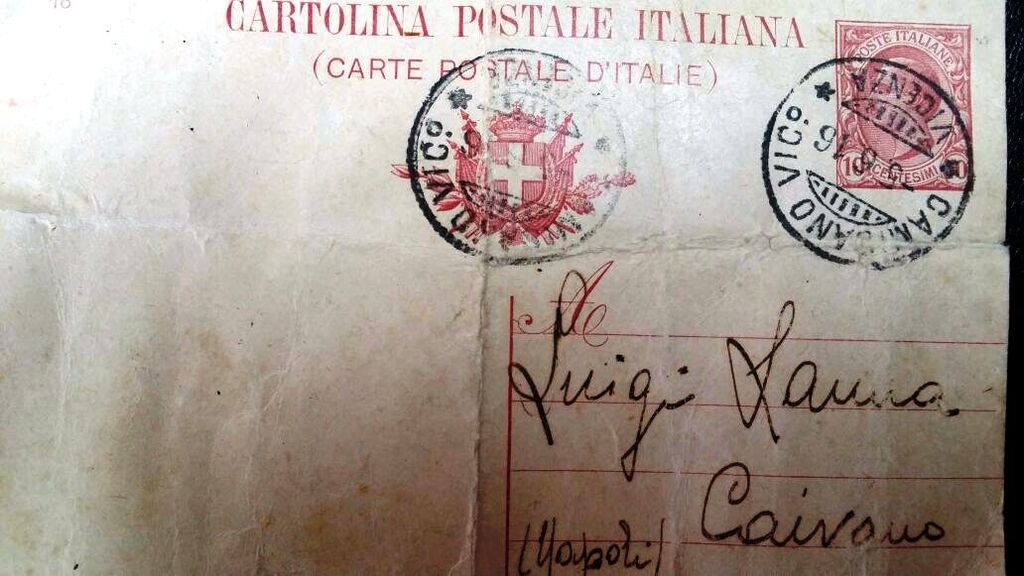 CARTOLINA POSTALE ITALIANA
(CARTE POSTALE D'ITALIE)
POSTE ITALIANE
10 CENTESIMI 10
CAMISANO VICº.
VICENZA
VICº.
A
Luigi Lanna
Caivano
(Napoli)